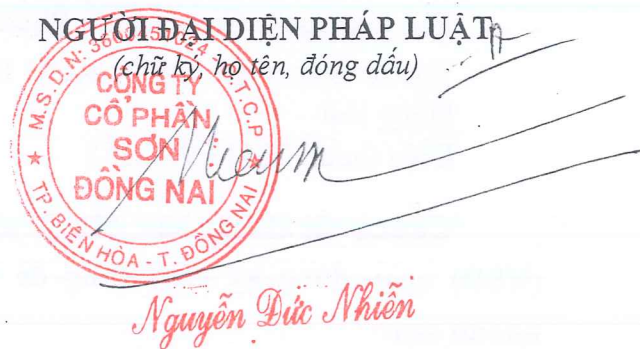 NGƯỜI ĐẠI DIỆN PHÁP LUẬT
(chữ ký, họ tên, đóng dấu)
CÔNG TY
CỔ PHẦN
SƠN
ĐỒNG NAI
TP. BIÊN HÒA - T. ĐỒNG NAI
Nguyễn Đức Nhiễn